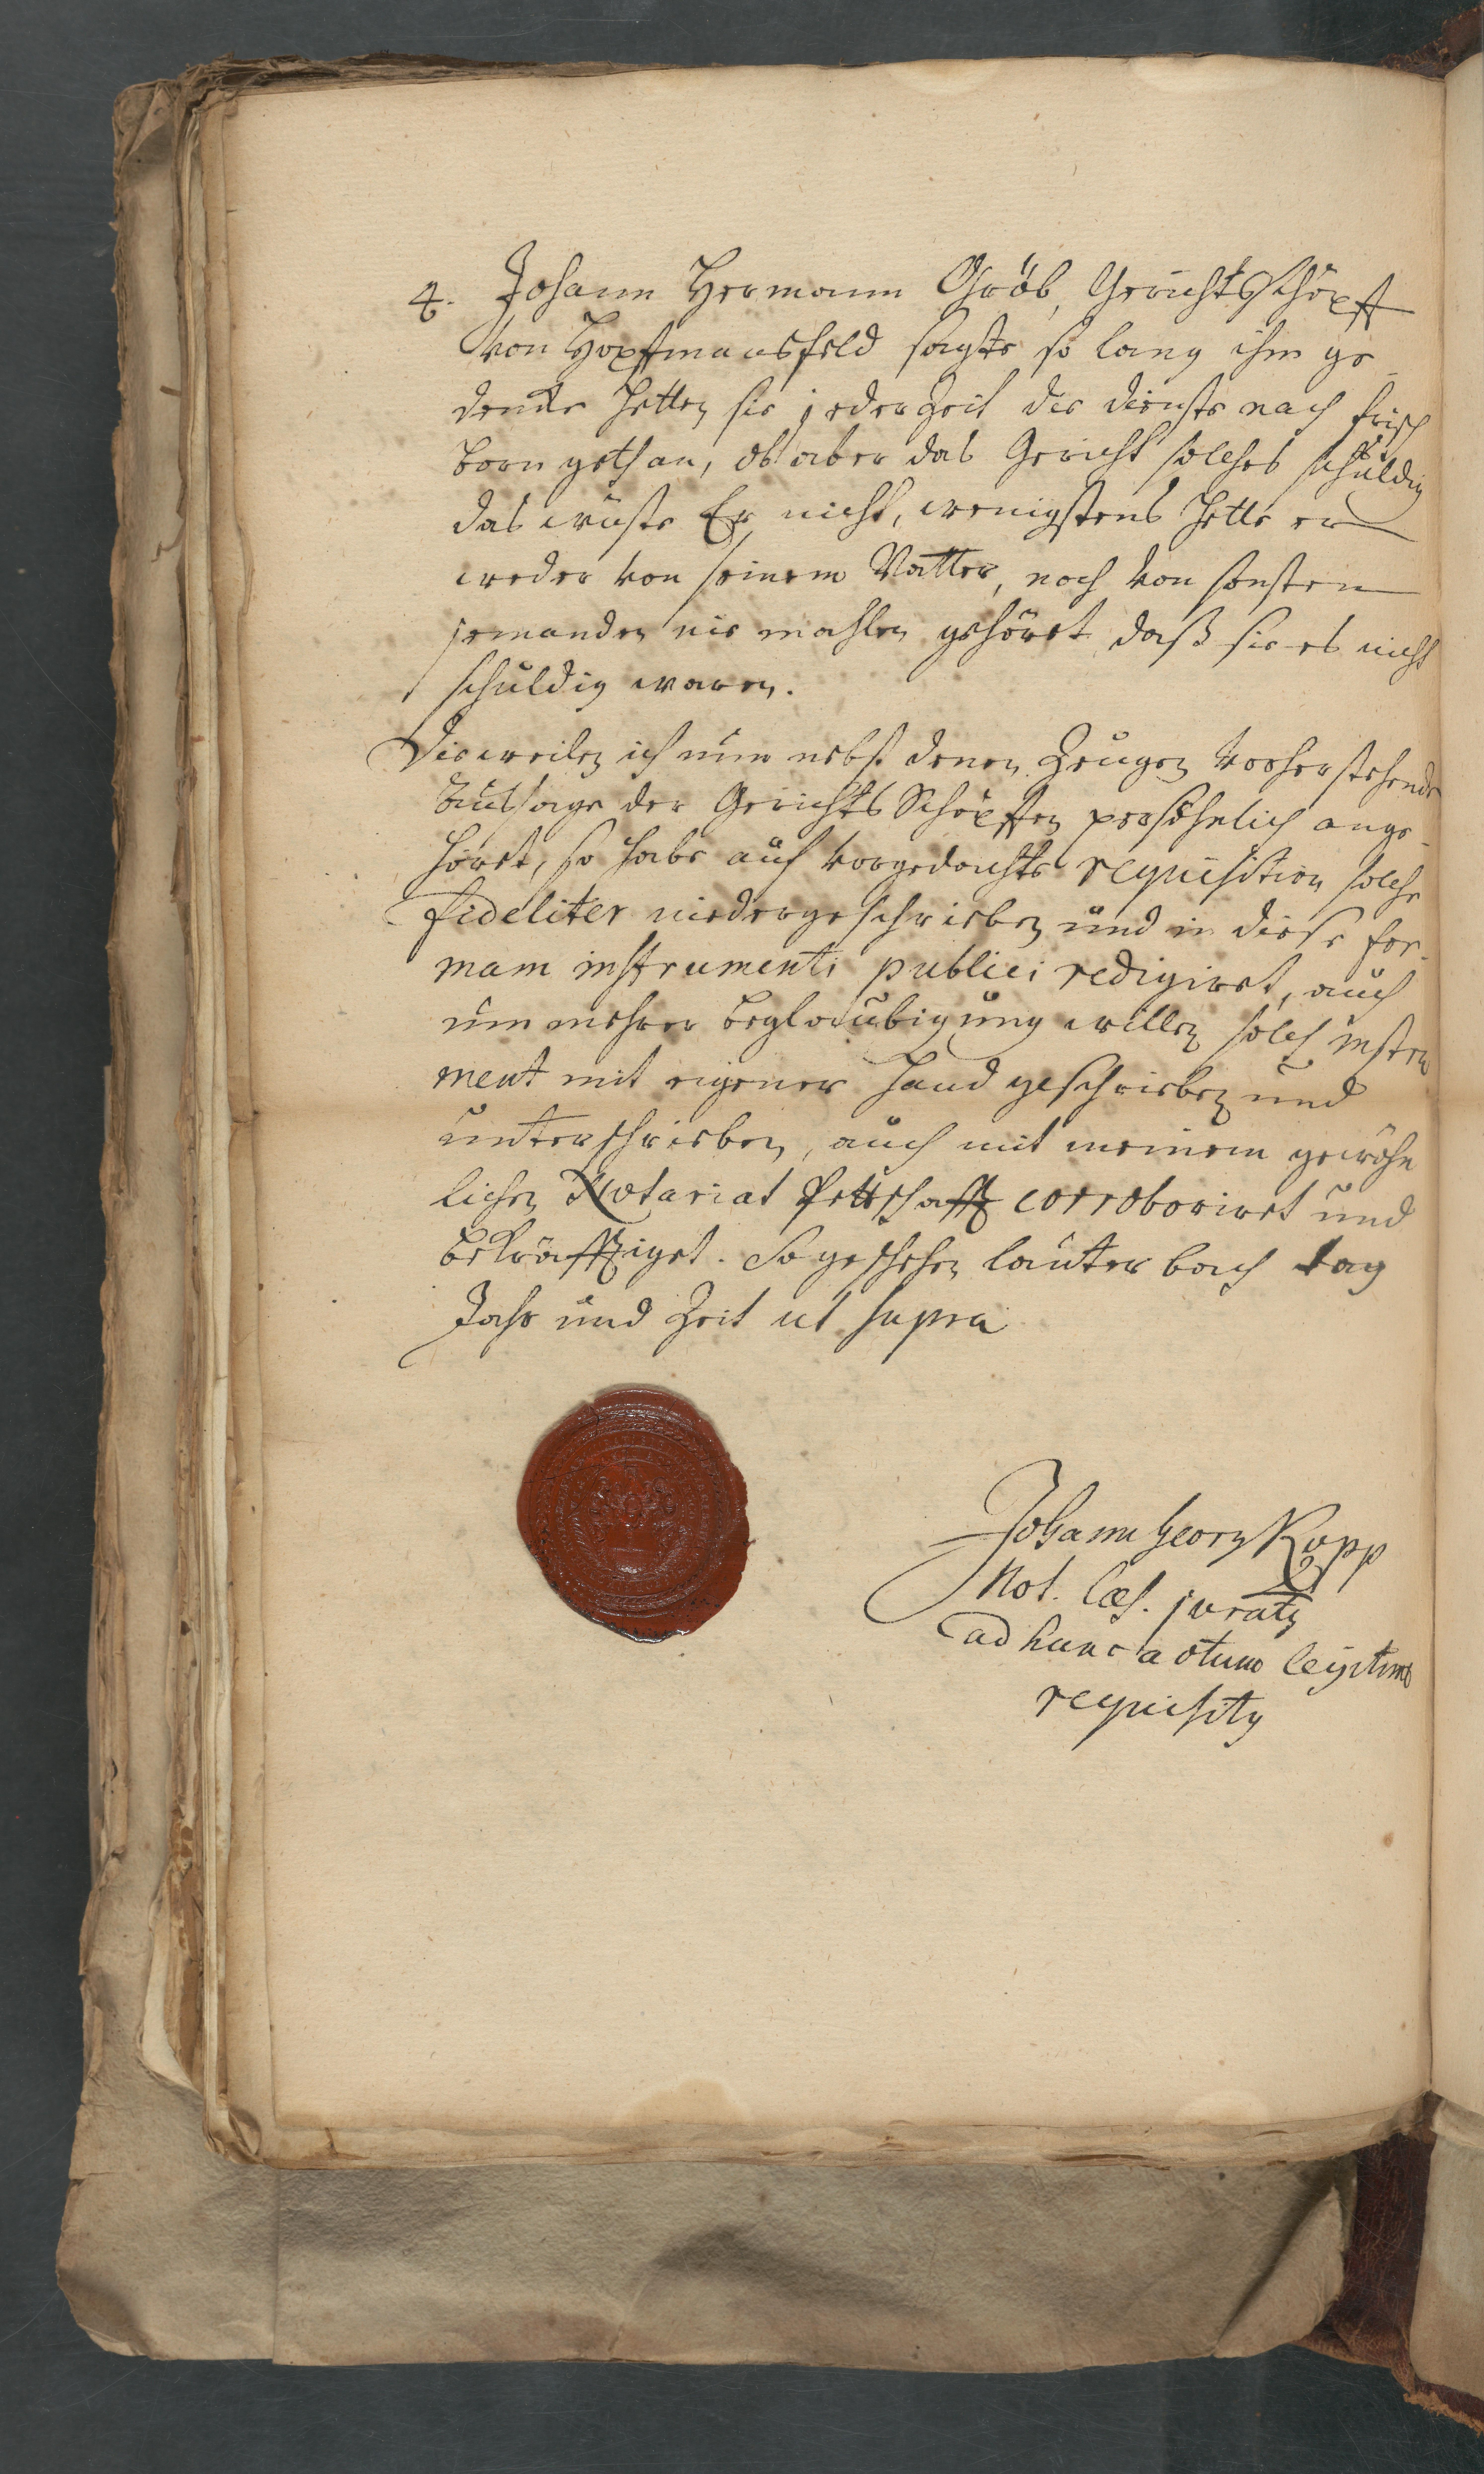 4. Johann Hermann Gröb, Gerichtsschöpff
von Hopffmansfeld sagte so lang ihm ge
dencke hetten sie jederzeit die dienste nach frisch
born gethan, ob aber das Gericht solches schuldig
das wüste Er nicht, wenigstens hette er
weder von seinem Vatter, noch von sonsten
jemanden nie mahlen gehöret daß sie es nicht
schuldig waren.
Dieweilen ich nun nebst denen Zeugen vorherstehende
Außsage der Gerichts Schöpffen persöhnlich ange
höret, so habe auf vorgedachte requisition solche
fideliter niedergeschrieben und in diese for-
mam instrumenti publici redigiret, auch
um mehrer beglaubigung willen solch instru
ment mit eigener Hand geschrieben und
unterschrieben, auch mit meinem gewöhn
lichen Notariat Pettschafft corroboriret und
bekräfftiget. So geschehen lauterbach tag
Jahr und Zeit ut supra
Johann Georg Rupp
Not. Cæs. juratus
ad hunc actum legitime
requisitus